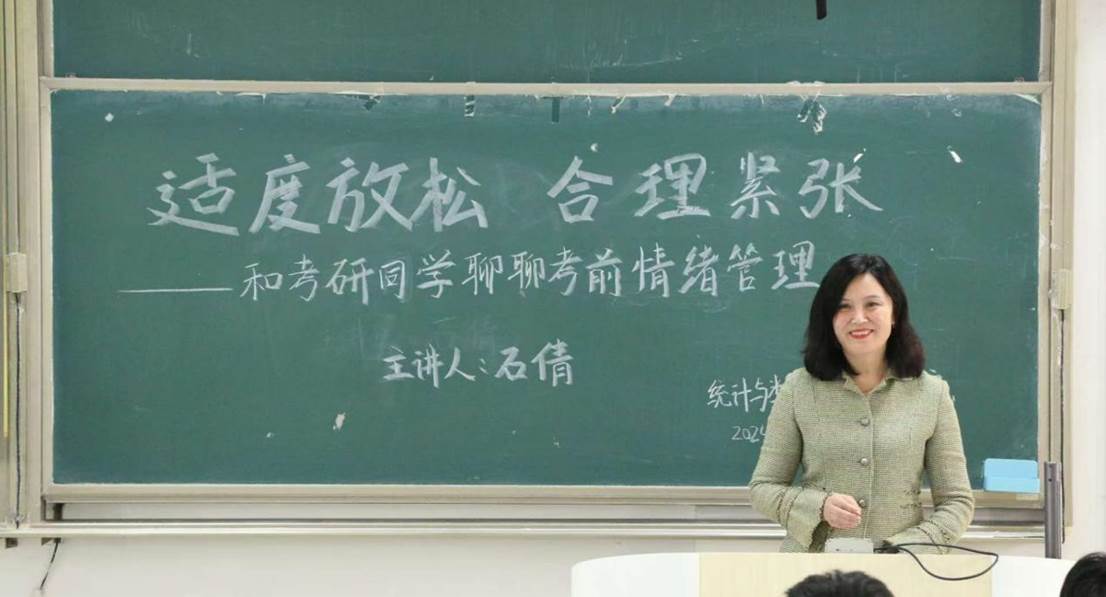 适度放松 合理紧张
——和考研同学聊聊考前情绪管理
主讲人：石倩
统计与
202